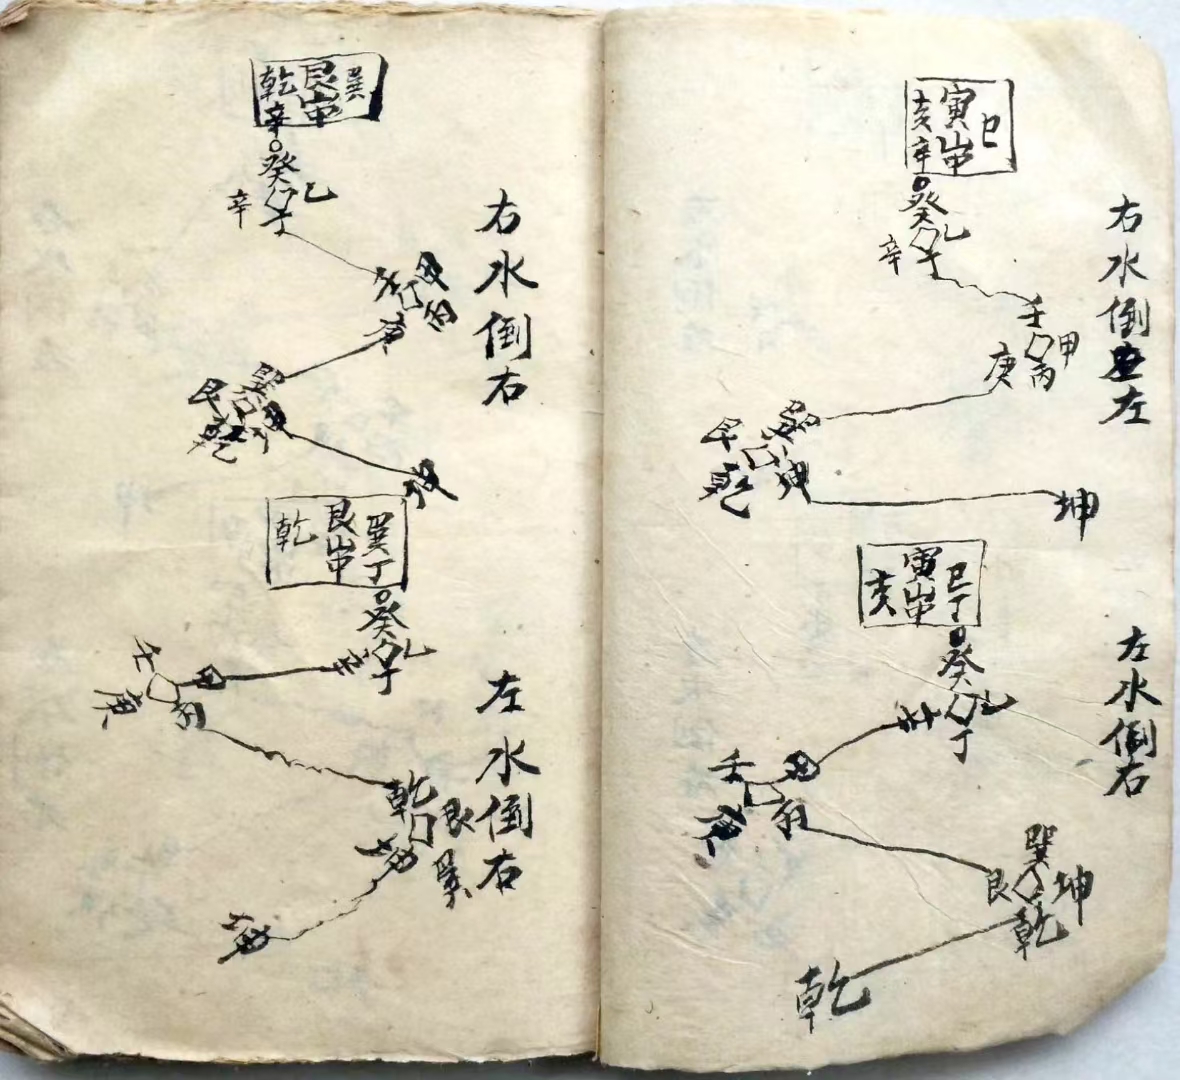 右水倒左
巳
寅山申
亥
辛
癸
乙
辛
丁
壬
甲
庚
丙
巽
艮
坤
乾
坤
左水倒右
巳丁
寅山申
亥
癸
乙
辛
丁
甲
壬
庚
丙
巽
艮
坤
乾
乾
右水倒右
巽
艮山
乾
辛
癸
乙
辛
丁
壬
甲
丙
庚
巽
艮
坤
乾
左水倒右
巽丁
艮山
乾
癸
乙
辛
丁
壬
甲
庚
丙
乾
艮
坤
巽